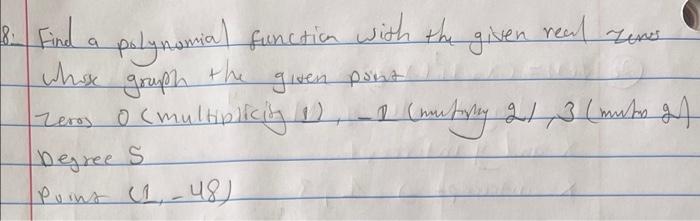 8. Find a polynomial function with the given real zeros
whose graph the given point
Zeros 0 (multiplicity 1), -1 ( 2), 3 ( 2)
Degree 5
Point (1, -48)